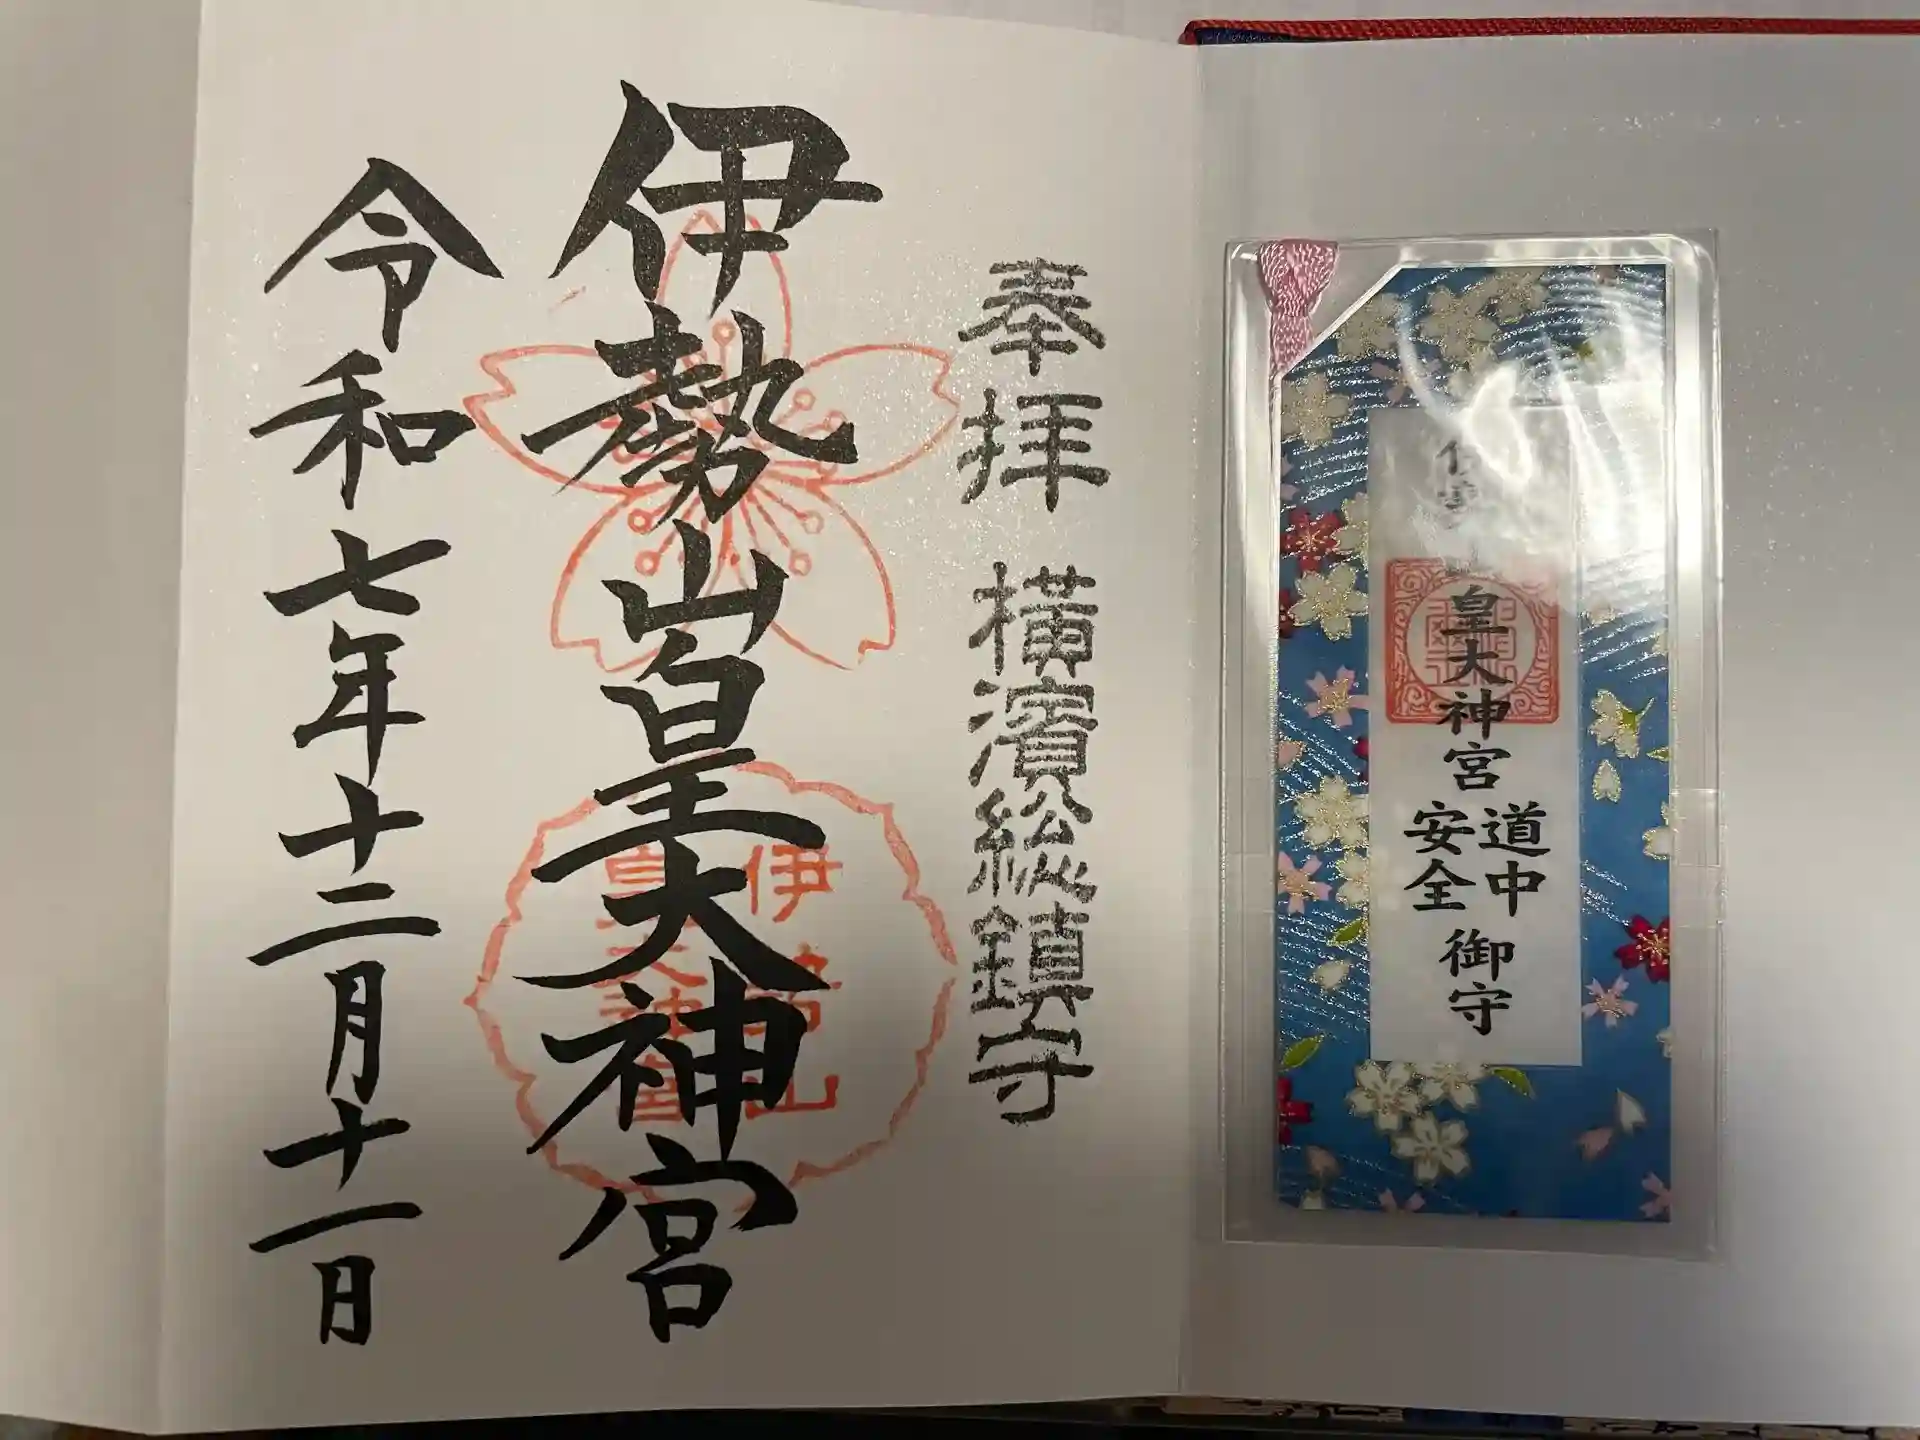 伊勢山
皇大神宮
道中
安全
御守
奉拝 横濱総鎮守
伊勢山皇大神宮
伊勢山
皇大神宮
令和七年十二月十一日